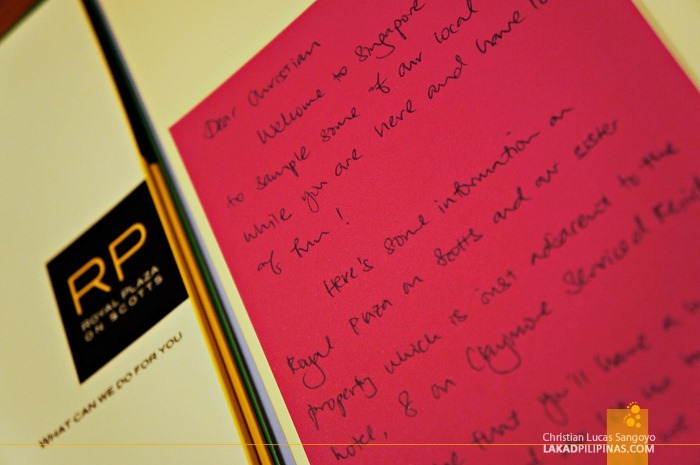 RP
ROYAL PLAZA
ON SCOTTS
WHAT CAN WE DO FOR YOU
Dear Christian
Welcome to Singapore
to sample some of our local
while you are here and have
of fun!
Here's some information on
Royal Plaza on Scotts and our sister
property which is just adjacent to the
hotel, 8 on Claymore Serviced
that you'll have a
Christian Lucas Sangoyo
LAKADPILIPINAS.COM